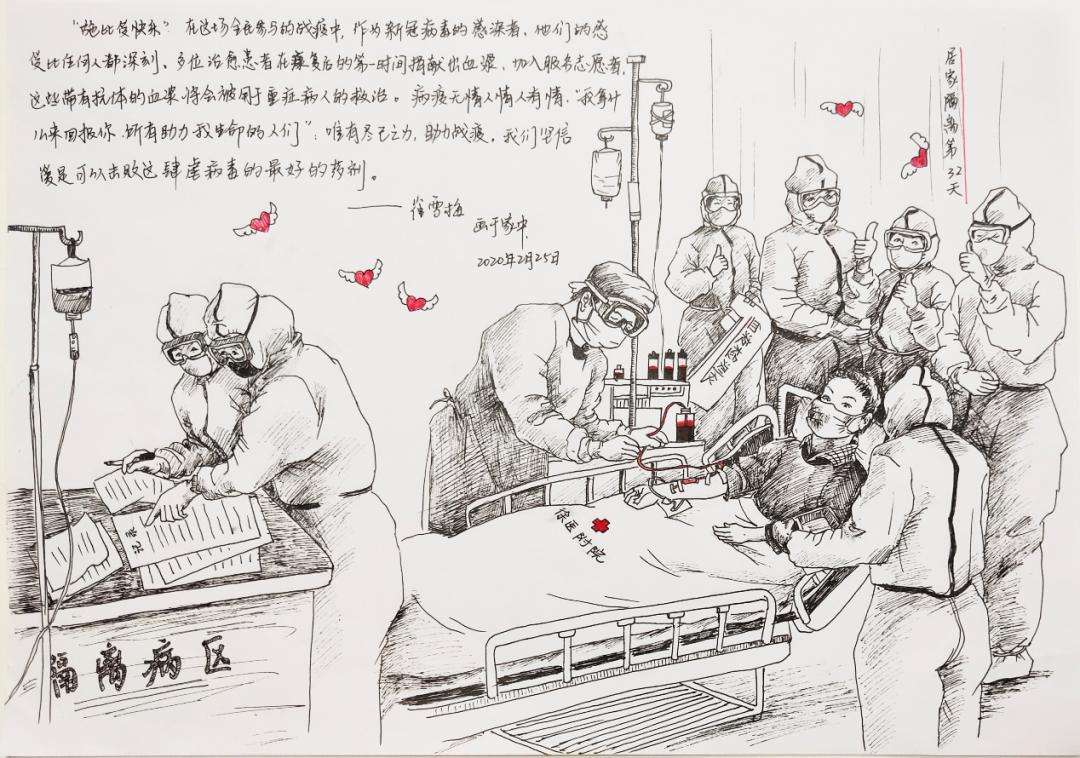 "施比受快乐"在这场全民参与的战疫中,作为新冠病毒的感染者,他们的感
受比任何人都深刻,多位治愈患者在康复后的第一时间捐献出血浆,加入服务志愿者,
这些带有抗体的血浆将会被用于重症病人的救治。病疫无情人情人有情,"我拿什
么来回报你 所有助力我生命的人们";唯有尽己之力,助力战疫。我们坚信
爱是可以击败这肆虐病毒的最好的药剂。
—— 徐雪梅
画于家中
2020年2月25日
居家隔离第32天
血液检测仪
徐医附院
登记
隔离病区